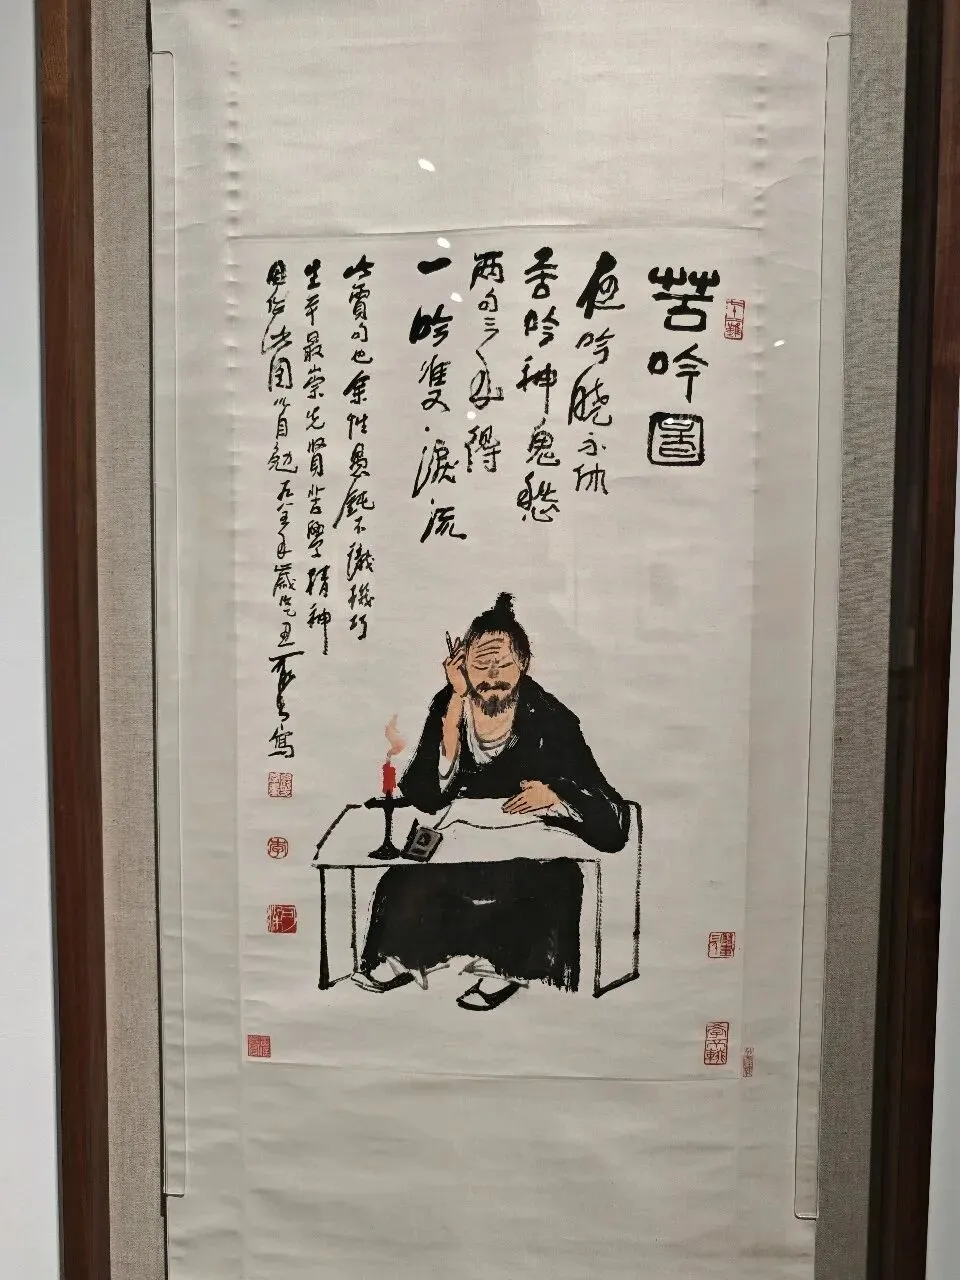 苦吟圖
夜吟曉不休
苦吟神鬼愁
兩句三年得
一吟雙淚流
此賈句也余性愚鈍不識機巧
生平最崇先賢苦學精神
作此圖以自勉 年歲乙丑可染寫